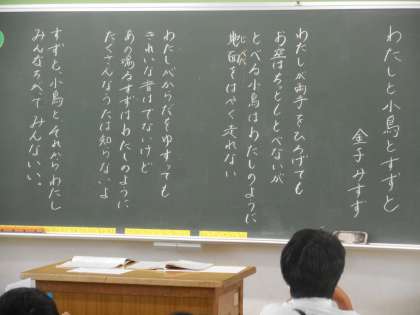 わたしと小鳥とすずと
金子みすず
わたしが両手をひろげても
お空はちっともとべないが
とべる小鳥はわたしのように
地面をはやく走れない
わたしがからだをゆすっても
きれいな音はでないけど
あの鳴るすずはわたしのように
たくさんなうたは知らないよ
すずと、小鳥とそれからわたし
みんなちがってみんないい。